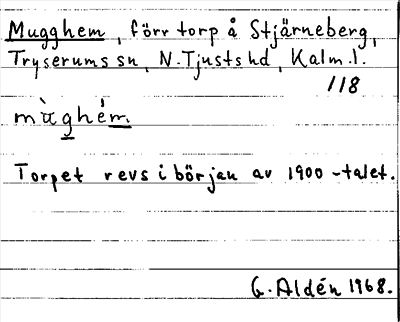 Mugghem, förr torp å Stjärneberg,
Tryserums sn, N. Tjusts hd, Kalm. l.
118
mù̀g̲hém̲.
Torpet revs i början av 1900-talet.
G. Aldén 1968.